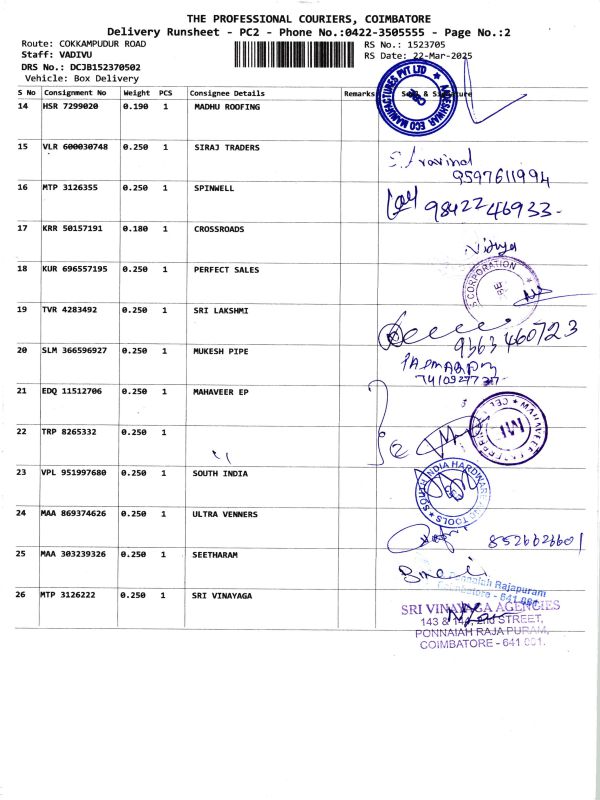 THE PROFESSIONAL COURIERS, COIMBATORE
Delivery Runsheet - PC2 - Phone No.:0422-3505555 - Page No.:2
Route: COKKAMPUDUR ROAD RS No.: 1523705
Staff: VADIVU RS Date: 22-Mar-2025
DRS No.: DCJB152370502
Vehicle: Box Delivery
S No Consignment No Weight PCS Consignee Details Remarks Seal & Signature
14 HSR 7299020 0.190 1 MADHU ROOFING
ECO MANUFACTURES PVT LTD
15 VLR 600030748 0.250 1 SIRAJ TRADERS
S. Aravind
9597611994
16 MTP 3126355 0.250 1 SPINWELL
9842246933-
17 KRR 50157191 0.180 1 CROSSROADS
Vidya
18 KUR 696557195 0.250 1 PERFECT SALES
CORPORATION
19 TVR 4283492 0.250 1 SRI LAKSHMI
9363460723
20 SLM 366596927 0.250 1 MUKESH PIPE
21 EDQ 11512706 0.250 1 MAHAVEER EP
MAHAVEER ENTERPRISES
22 TRP 8265332 0.250 1
23 VPL 951997680 0.250 1 SOUTH INDIA
SOUTH INDIA HARDWARE AND TOOLS
24 MAA 869374626 0.250 1 ULTRA VENNERS
8526626601
25 MAA 303239326 0.250 1 SEETHARAM
Ponnaiah Rajapuram
Coimbatore - 641 001
26 MTP 3126222 0.250 1 SRI VINAYAGA
SRI VINAYAGA AGENCIES
143 & 144, 2nd STREET,
PONNAIAH RAJA PURAM,
COIMBATORE - 641 001.